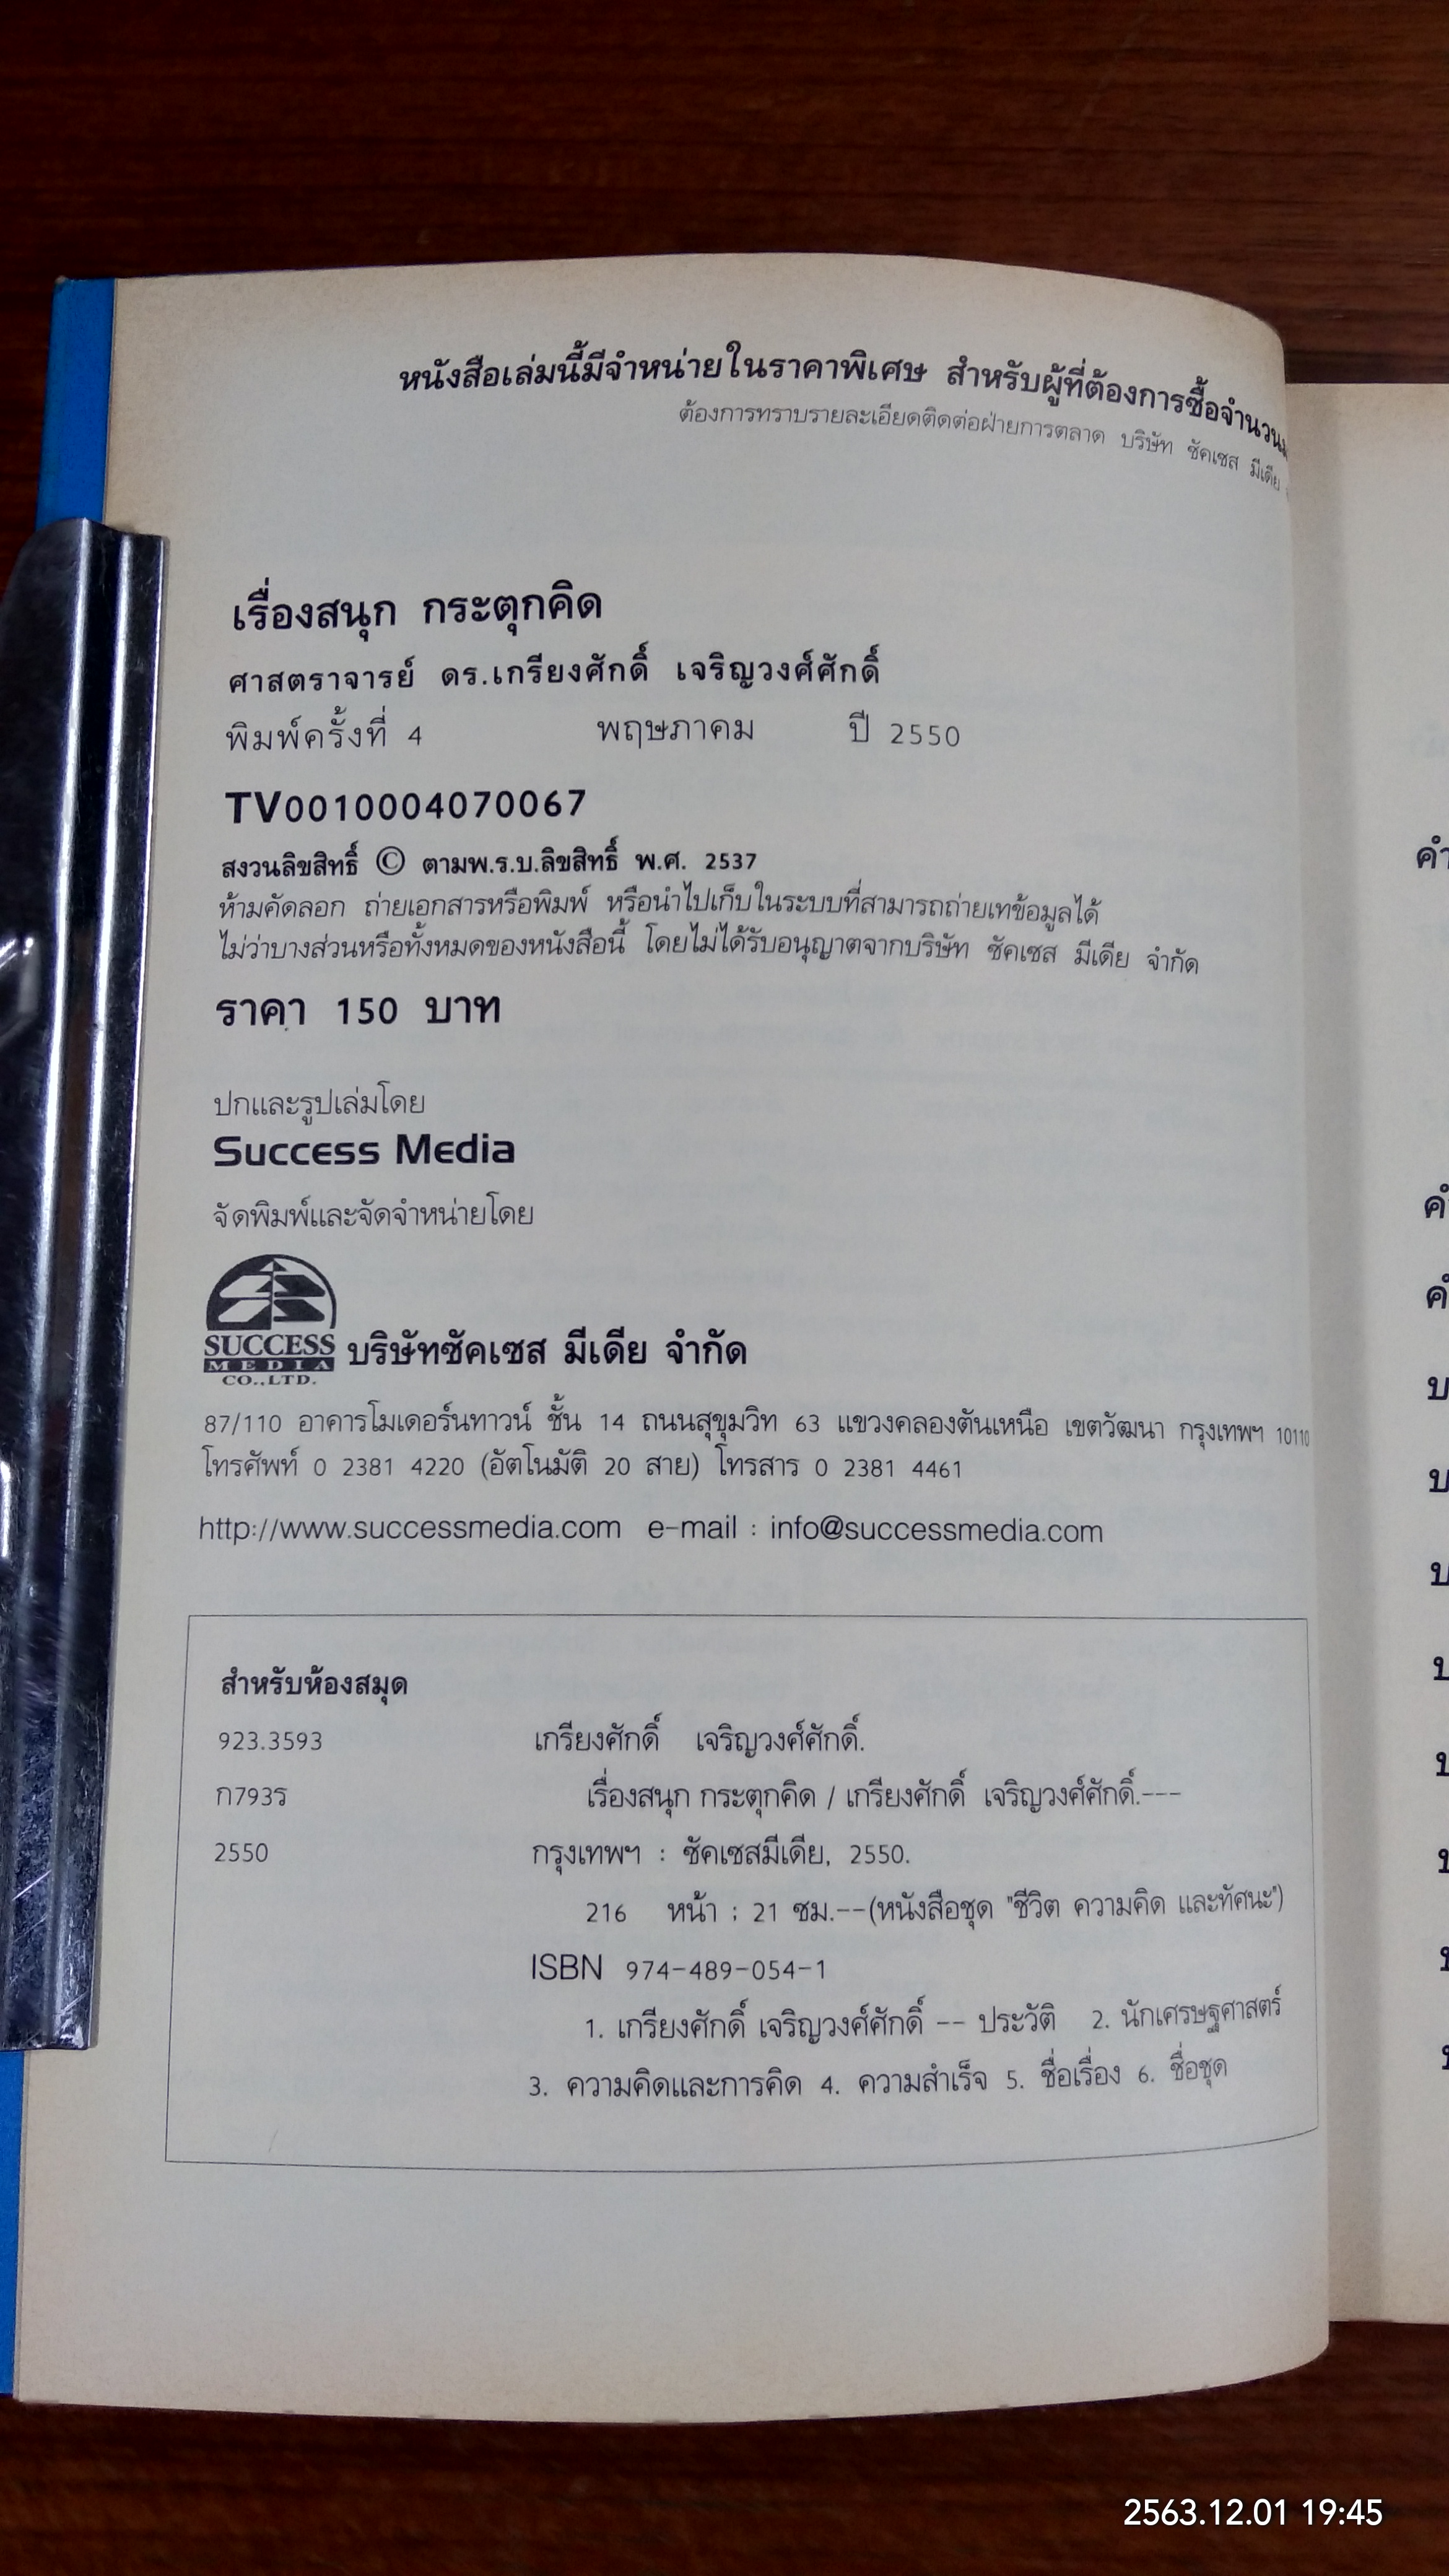 หนังสือเล่มนี้มีจำหน่ายในราคาพิเศษ สำหรับผู้ที่ต้องการซื้อจำนวน
ต้องการทราบรายละเอียดติดต่อฝ่ายการตลาด บริษัท ซัคเซส มีเดีย
เรื่องสนุก กระตุกคิด
ศาสตราจารย์ ดร.เกรียงศักดิ์ เจริญวงศ์ศักดิ์
พิมพ์ครั้งที่ 4 พฤษภาคม ปี 2550
TV0010004070067
สงวนลิขสิทธิ์ © ตามพ.ร.บ.ลิขสิทธิ์ พ.ศ. 2537
ห้ามคัดลอก ถ่ายเอกสารหรือพิมพ์ หรือนำไปเก็บในระบบที่สามารถถ่ายเทข้อมูลได้
ไม่ว่าบางส่วนหรือทั้งหมดของหนังสือนี้ โดยไม่ได้รับอนุญาตจากบริษัท ซัคเซส มีเดีย จำกัด
ราคา 150 บาท
ปกและรูปเล่มโดย
Success Media
จัดพิมพ์และจัดจำหน่ายโดย
SUCCESS
MEDIA
CO.,LTD.
บริษัทซัคเซส มีเดีย จำกัด
87/110 อาคารโมเดอร์นทาวน์ ชั้น 14 ถนนสุขุมวิท 63 แขวงคลองตันเหนือ เขตวัฒนา กรุงเทพฯ 10110
โทรศัพท์ 0 2381 4220 (อัตโนมัติ 20 สาย) โทรสาร 0 2381 4461
http://www.successmedia.com e-mail : info@successmedia.com
สำหรับห้องสมุด
923.3593 เกรียงศักดิ์ เจริญวงศ์ศักดิ์.
ก793ร เรื่องสนุก กระตุกคิด / เกรียงศักดิ์ เจริญวงศ์ศักดิ์.---
2550 กรุงเทพฯ : ซัคเซสมีเดีย, 2550.
216 หน้า : 21 ซม.--(หนังสือชุด "ชีวิต ความคิด และทัศนะ")
ISBN 974-489-054-1
1. เกรียงศักดิ์ เจริญวงศ์ศักดิ์ -- ประวัติ 2. นักเศรษฐศาสตร์
3. ความคิดและการคิด 4. ความสำเร็จ 5. ชื่อเรื่อง 6. ชื่อชุด
2563.12.01 19:45